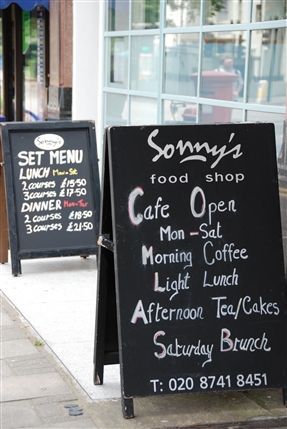 Sonny's
SET MENU
LUNCH Mon-Sat
2 COURSES £15.50
3 COURSES £17.50
DINNER Mon-Thur
2 COURSES £18.50
3 COURSES £21.50
Sonny's
food shop
Cafe Open
Mon-Sat
Morning Coffee
Light Lunch
Afternoon Tea/Cakes
Saturday Brunch
T: 020 8741 8451